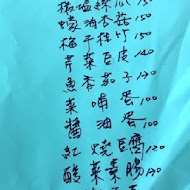 樹塩綠瓜150
蠔油杏菇150
梅干桂竹150
芹菜豆皮140
魚香茄子130
菜哺蛋100
醬油蛋100
紅燒豆腐120
酸菜素腸120